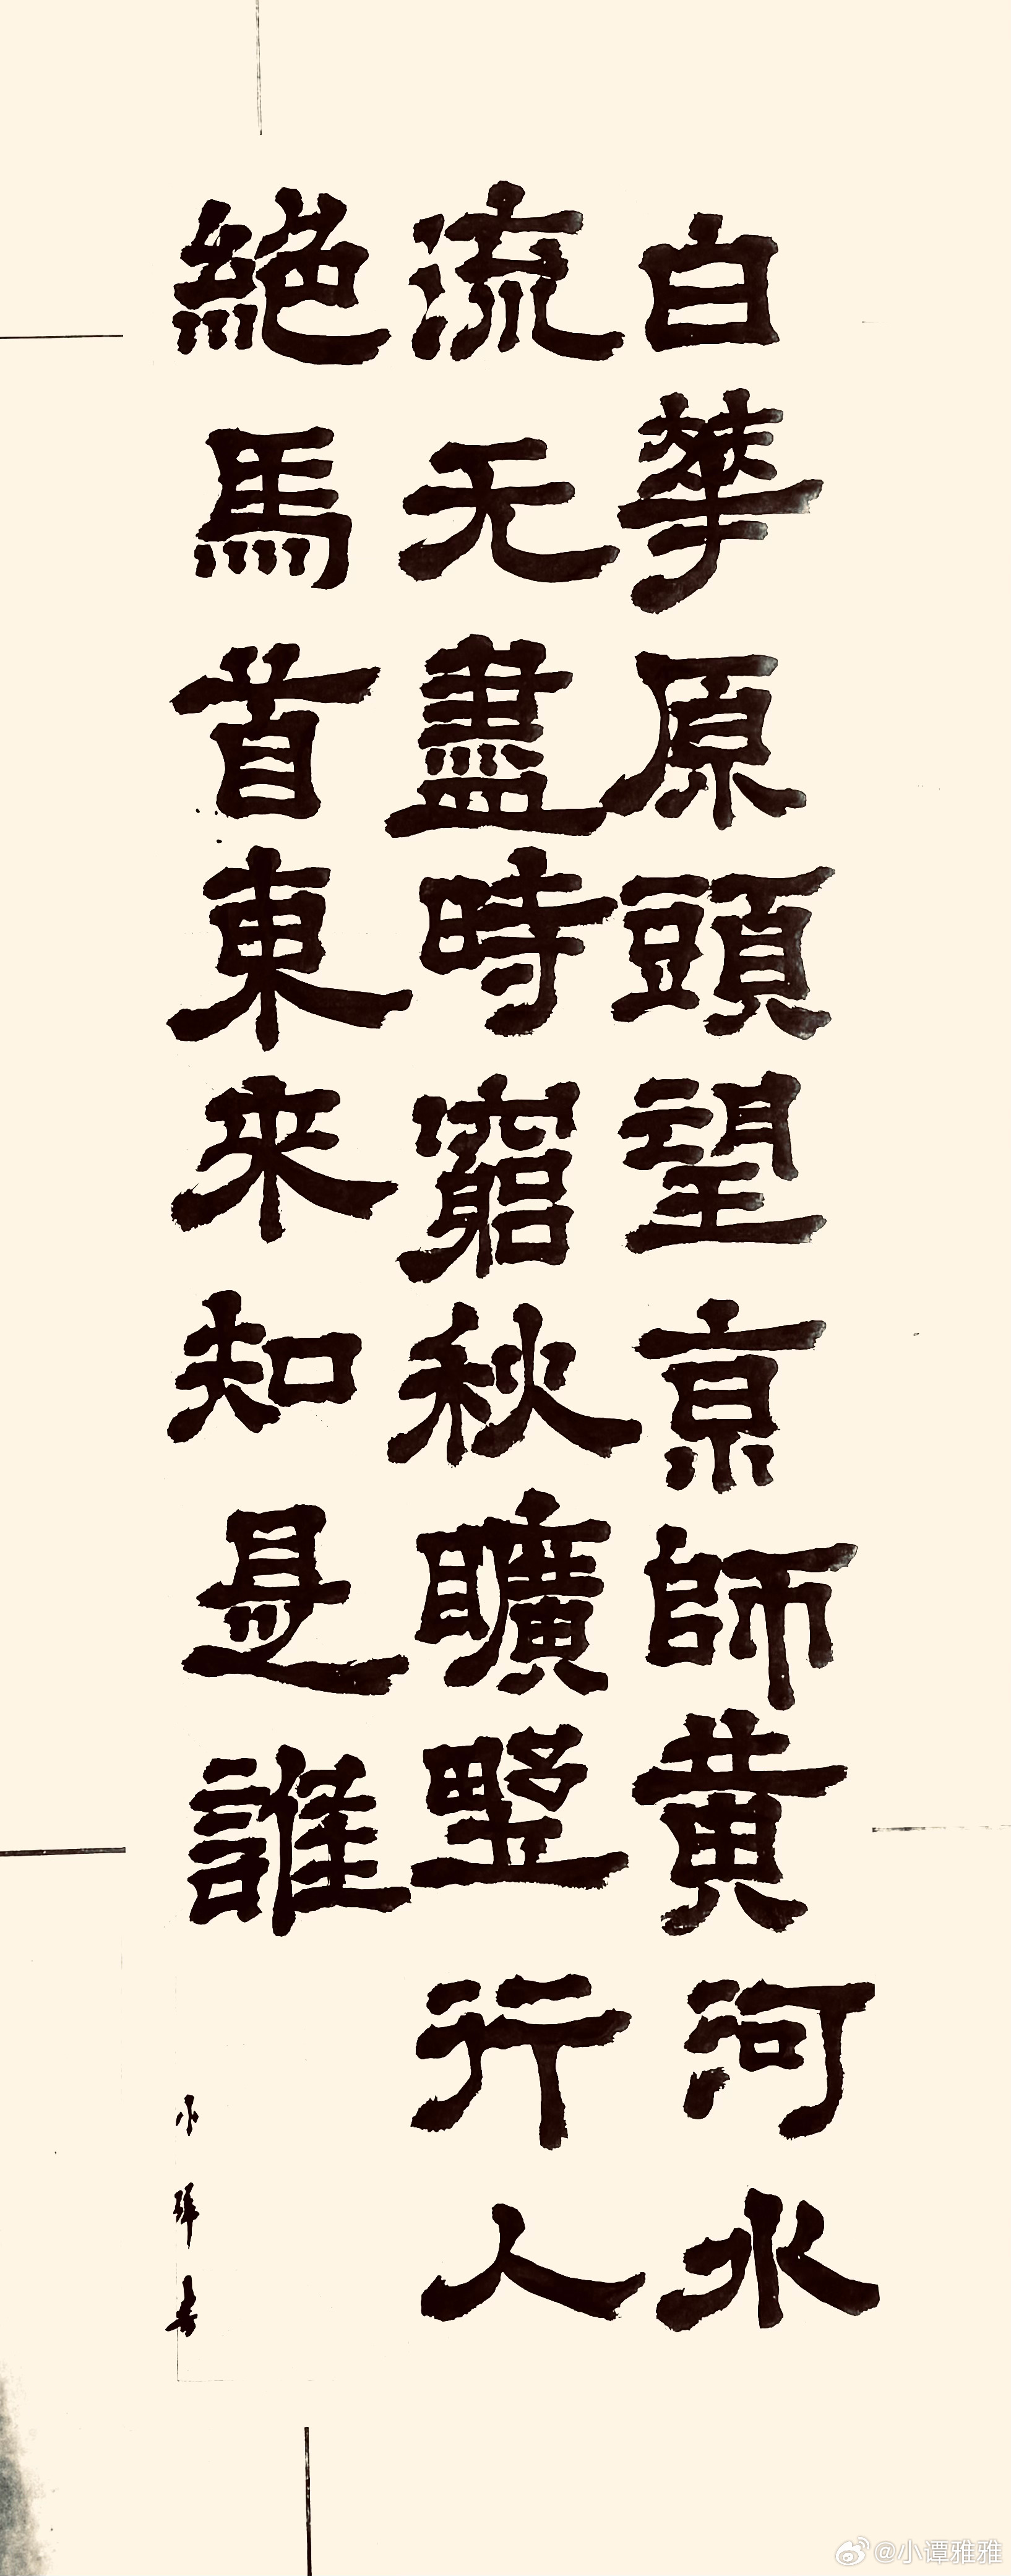 白華原頭望京師黄河水
流无盡時窮秋曠野行人
絶馬首東來知是誰
小璍書
@小谭雅雅